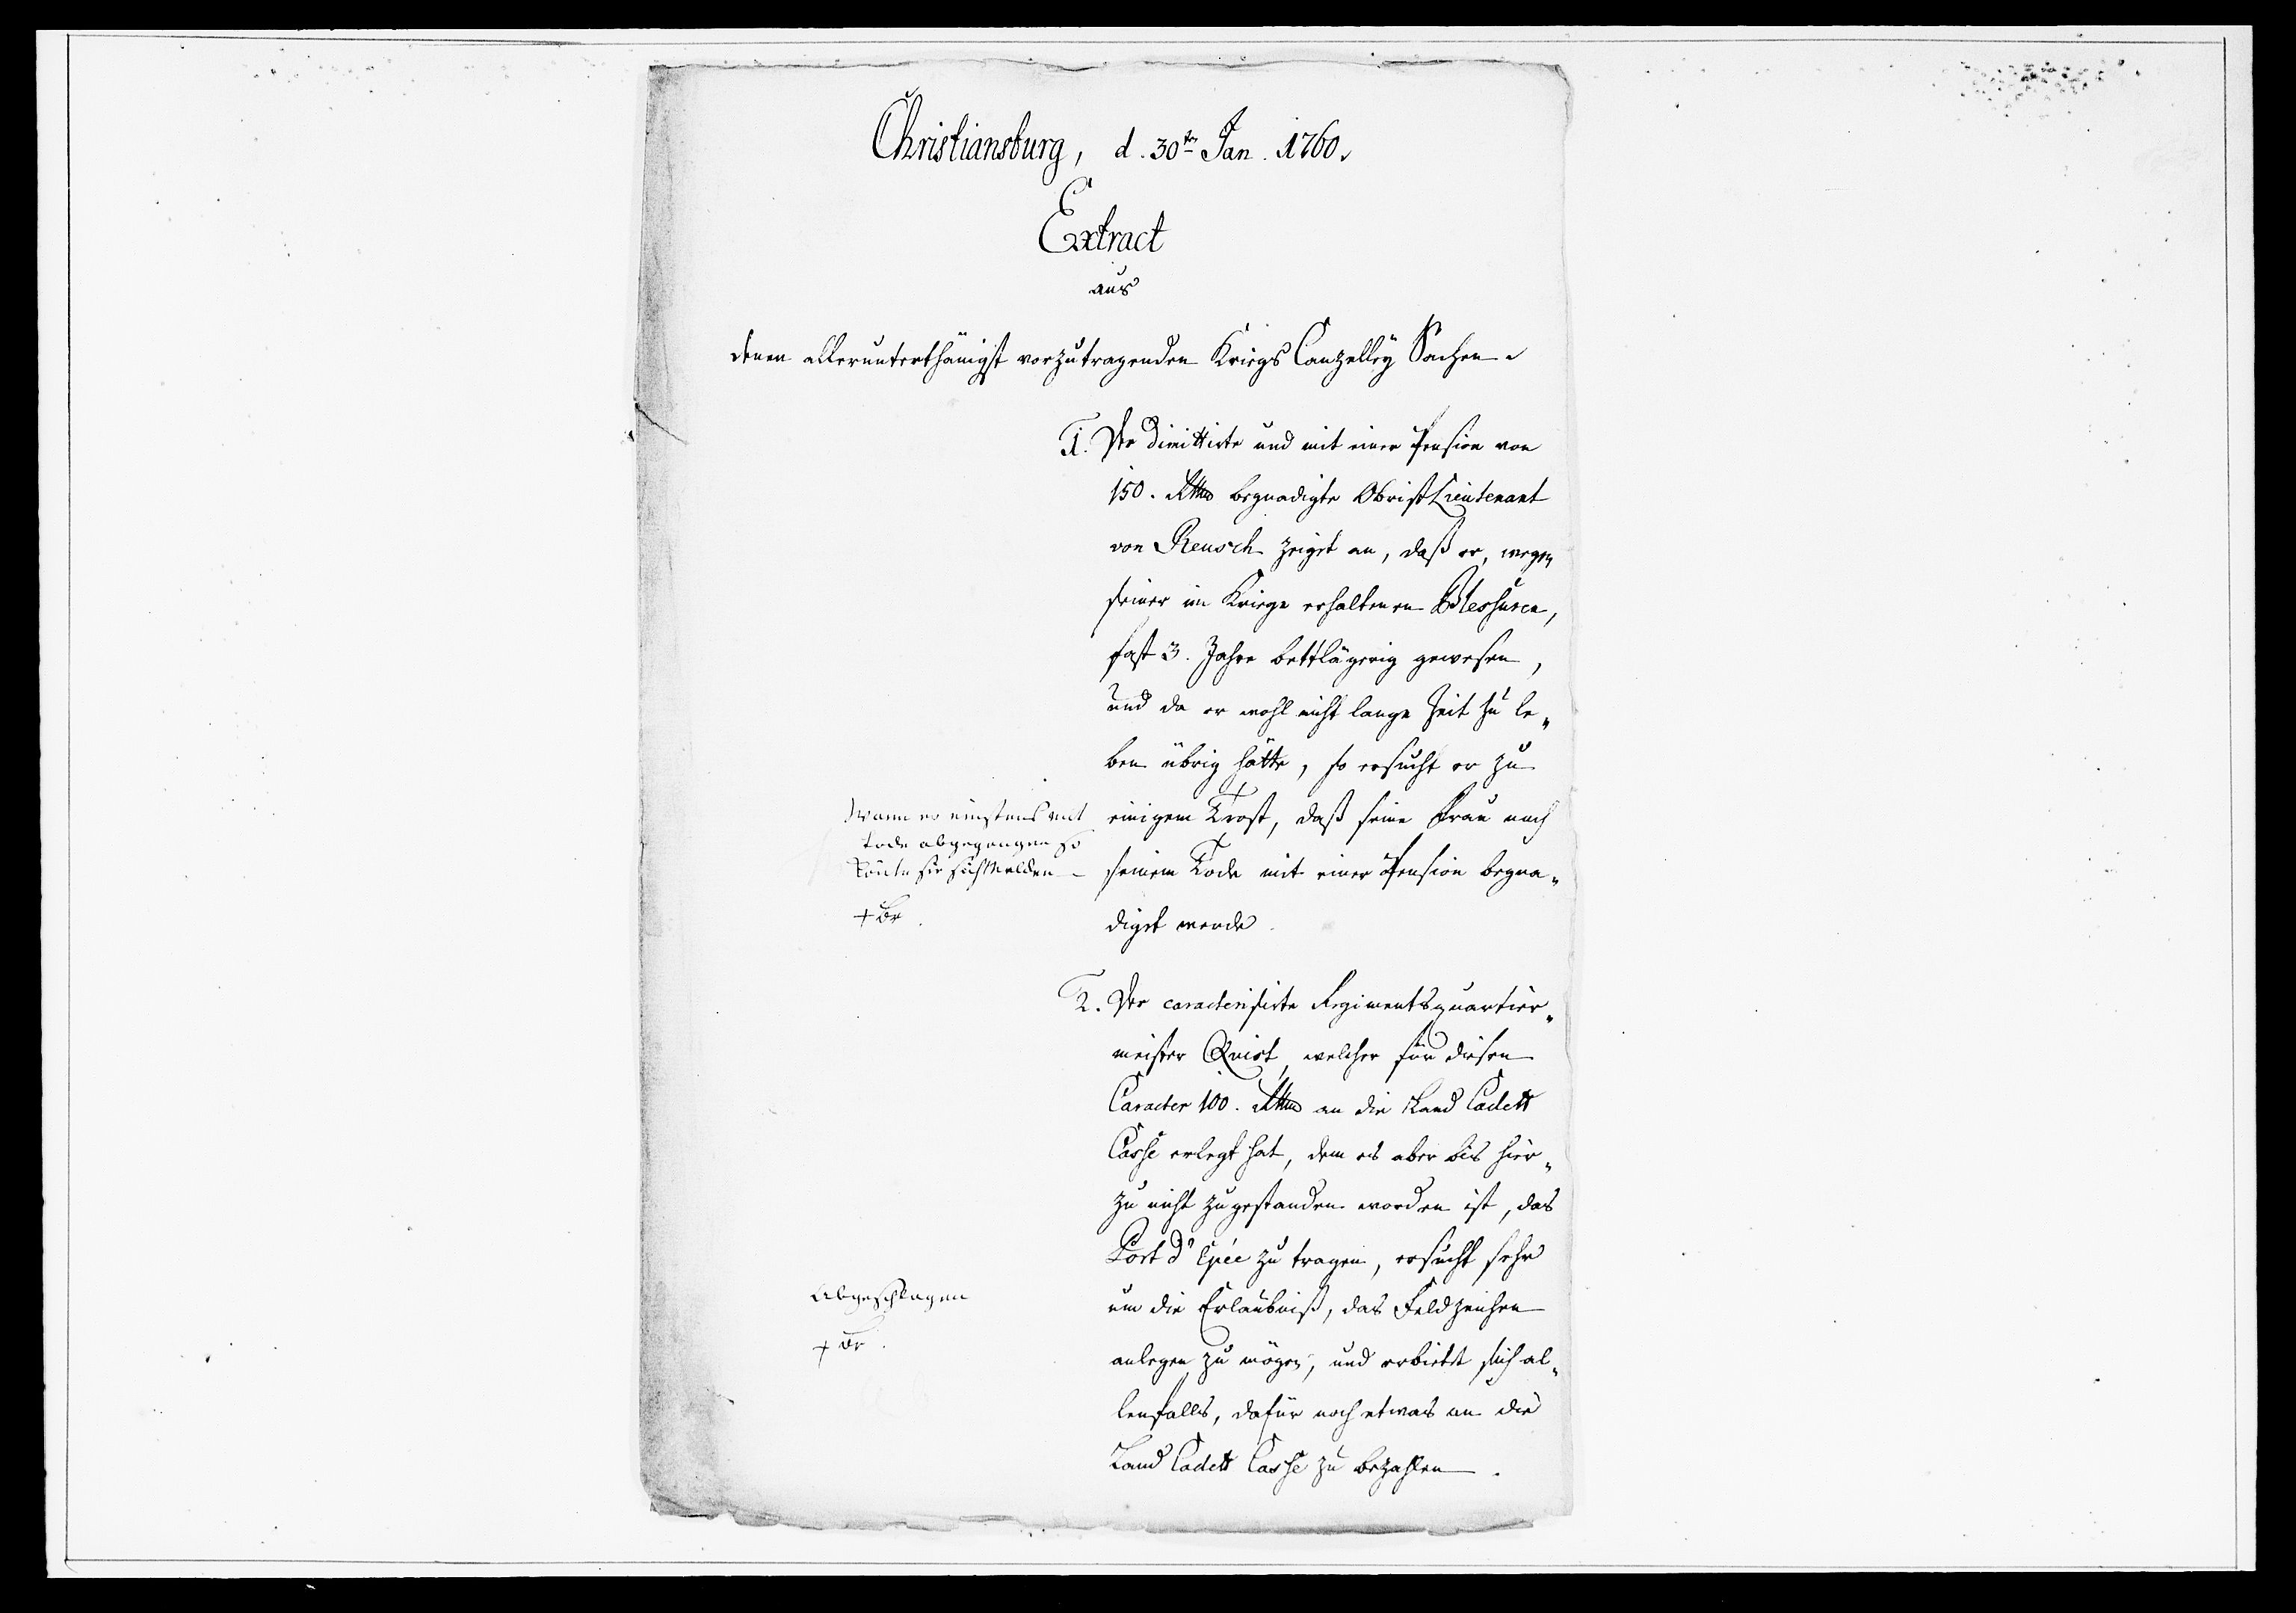 Christiansburg, d. 30ten Jan. 1760.
Extract
aus
denen allerunterthänigst vorzutragenden Kriegs Canzelley Sachen.
1. Der dimittirte und mit einer Pension von
150. Rthlr begnadigte Obrist Lieutenant
von Reusch zeiget an, daß er, wegen
seiner im Kriege erhaltenen Blessuren,
fast 3. Jahre bettlägerig gewesen,
und da er wohl nicht lange Zeit zu le„
ben übrig hätte, so ersucht er zu
einigem Trost, daß seine Frau nach
seinem Tode mit einer Pension begna„
diget werde.
Wann er einstens mit
tode abgegangen so
könte sie sich Melden
2. Der caracterisirte Regimentsquartier„
meister Quist, welcher für diesen
Caracter 100. Rthlr an die Land Cadett
Casse erlegt hat, dem es aber bis hier„
zu nicht zugestanden worden ist, das
Port d'Epée zu tragen, ersucht sehr
um die Erlaubniß, das Feldzeichen
anlegen zu mögen, und erbietet sich al„
lenfalls, dafür noch etwas an die
Land Cadett Casse zu bezahlen.
Abgeschlagen